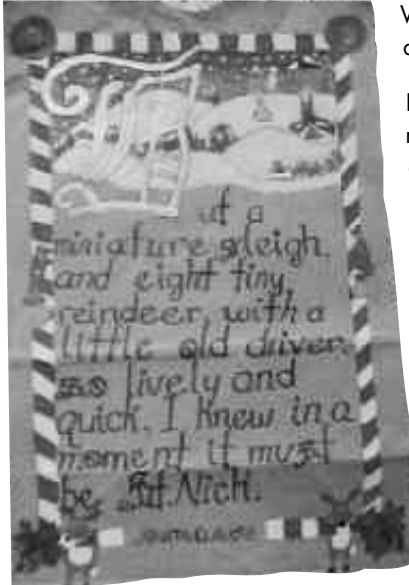 But a
miniature sleigh,
and eight tiny
reindeer, with a
little old driver,
so lively and
quick. I knew in a
moment it must
be St. Nick.